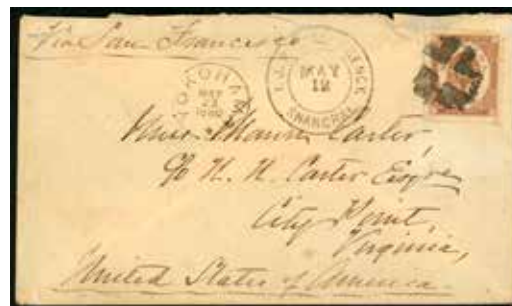 Via San Francisco
YOKOHAMA
MAY
23
1880
MAY
12
SHANGHAI
Miss Carter,
N. H. Carter Esqre
City Point,
Virginia,
United States of America.